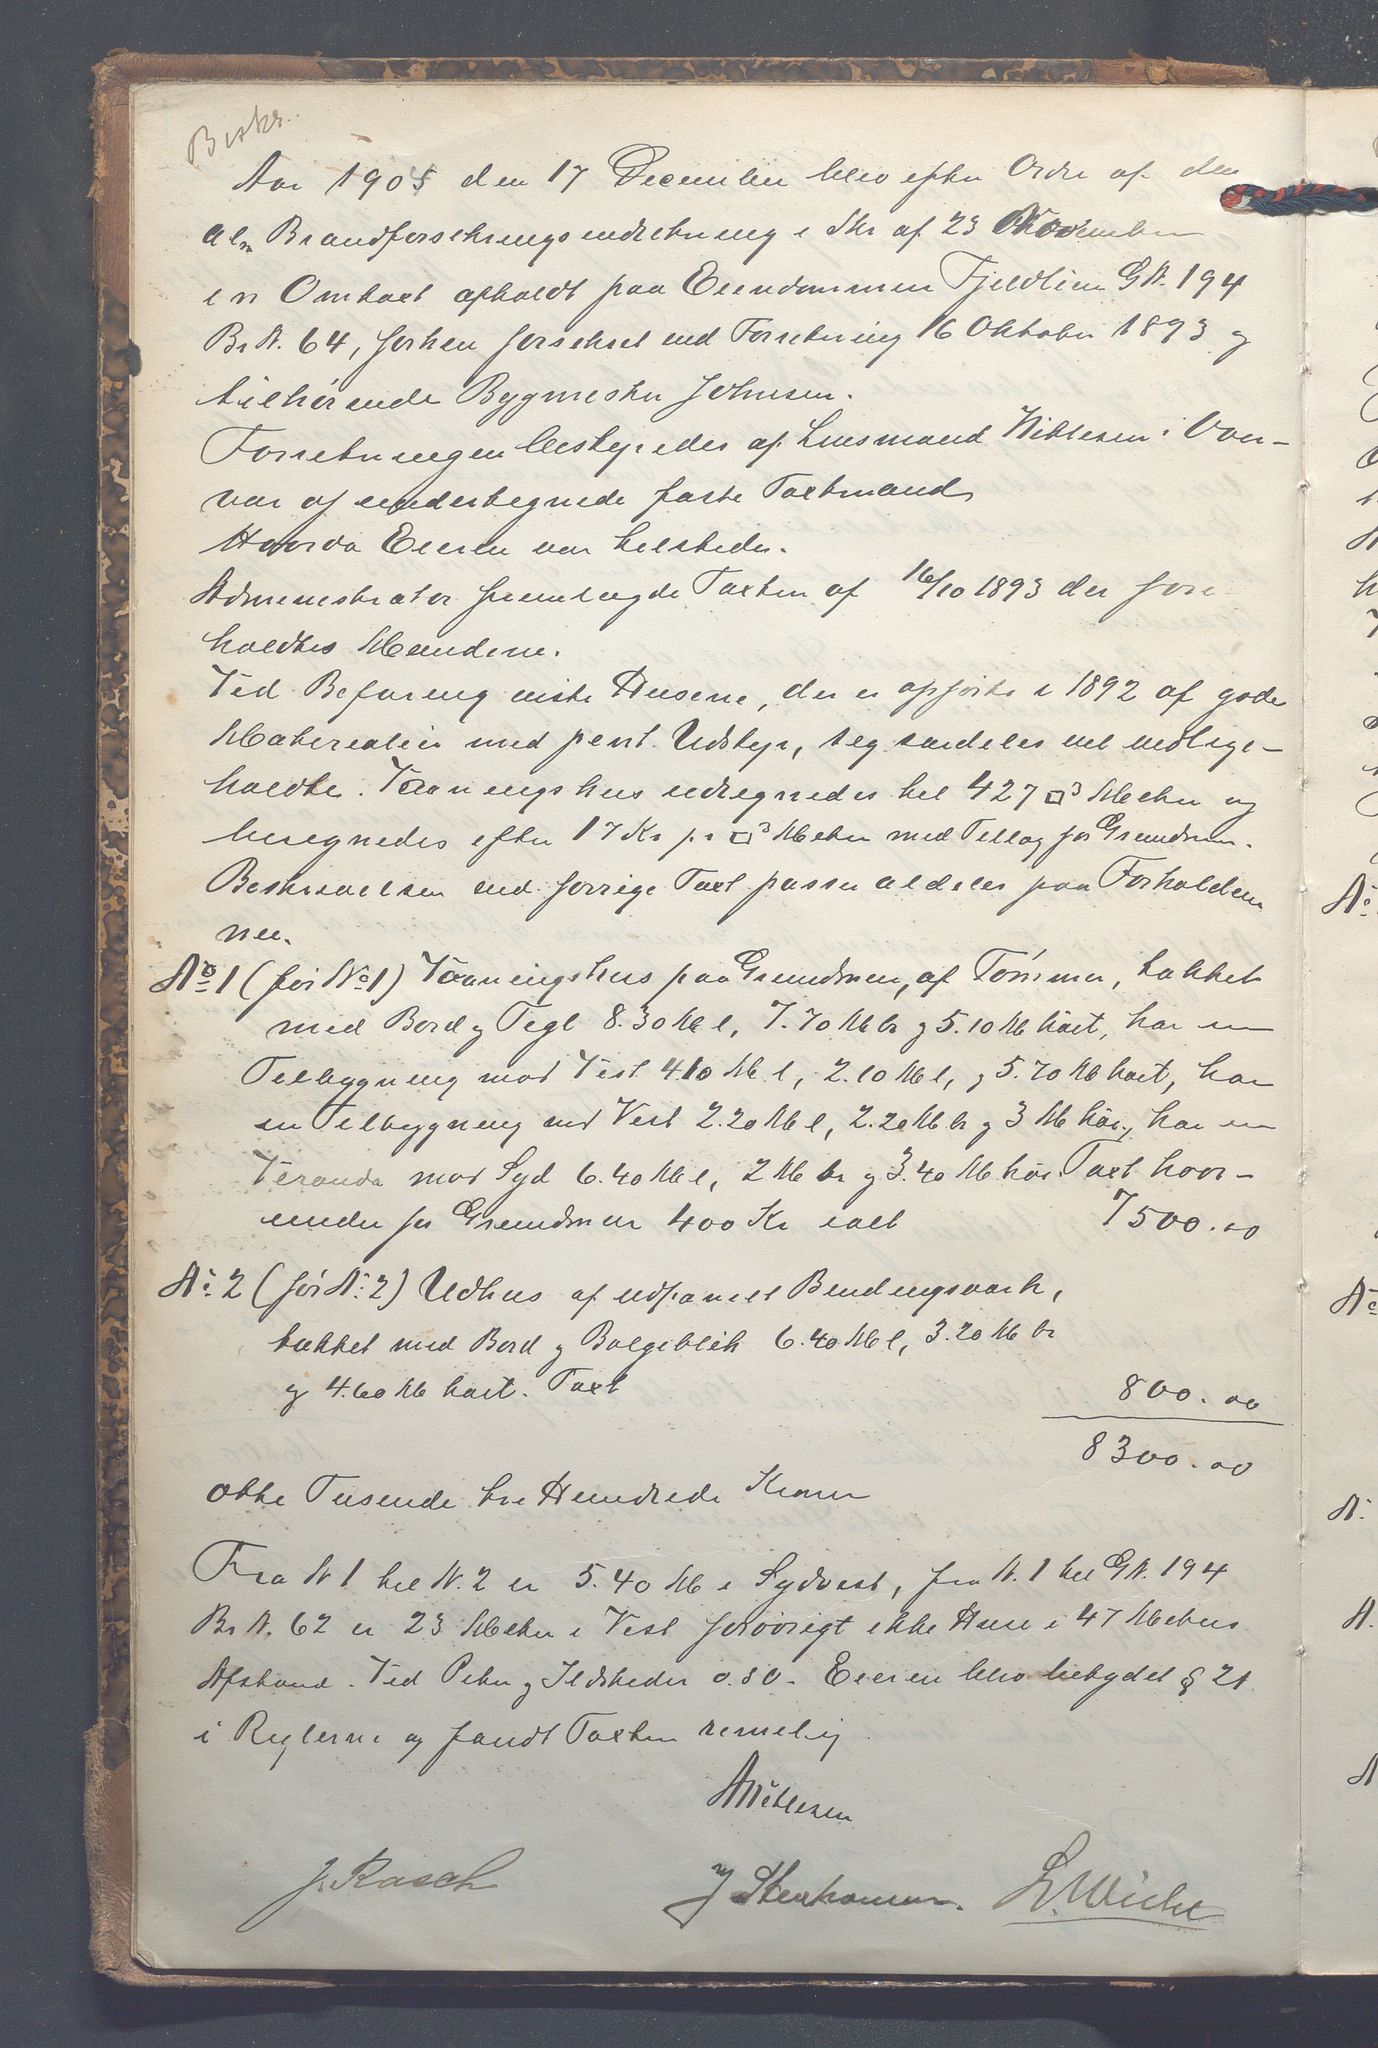 Beskr.
Aar 1905 den 17 December blev efter Ordre af den
alm Brandforsikringsindretning i Skr af 23 November
en Omtaxt afholdt paa Eiendommen Fjeldlien GN. 194
BrN. 64, forhen forsikret ved Forretning 16 Oktober 1893 og
tilhørende Bygmester Johnsen.
Forretningen bestyredes af Lensmand Nitlesen i Over-
vær af undertegnede faste Taxtmænd
Hvorda Eieren var tilstede.
Administrator fremlagde Taxten af 16/10 1893 der fore
holdtes Mændene.
Ved Befaring viste Husene, der er opførte i 1892 af gode
Materialier med pent Udstyr, sig særdeles vel vedlige-
holdte. Vaaningshus udregnedes til 427 □3 Meter og
beregnedes efter 17 Kr pr □3 Meter med Tillæg for Grundmur.
Beskrivelsen ved forrige Taxt passer aldeles paa Forholdene
nu.
No 1 (før No 1) Vaaningshus paa Grundmur, af Tømmer, tækket
med Bord og Tegl 8.30 M l, 7.70 M br og 5.10 M høit, har en
Tilbygning mod Vest 4.10 M l, 2.10 M l, og 5.70 M høit, har
en Tilbygning mod Vest 2.20 M l, 2.20 M br og 3 M høi, har en
Veranda mod Syd 6.40 M l, 2 M br og 3.40 M høi. Taxt hvor-
under for Grundmur 400 Kr ialt 7500.00
No. 2 (før N. 2) Udhus af udpanelt Bindingsværk,
tækket med Bord og Bølgeblik 6.40 M l, 3.20 M br
og 4.60 M høit. Taxt 800.00
8300.00
otte Tusende tre Hundrede Kroner
Fra N 1 til N. 2 er 5.40 M i Sydvest, fra N. 1 til GN. 194
BrN. 62 er 23 Meter i Vest forøvrigt ikke Huse i 47 Meters
Afstand. Ved Piber og Ildsteder o. s. v. Eieren blev betydet § 21
i Reglerne og fandt Taxten rimelig
Nitlesen
J. Rasch
L. Wiche